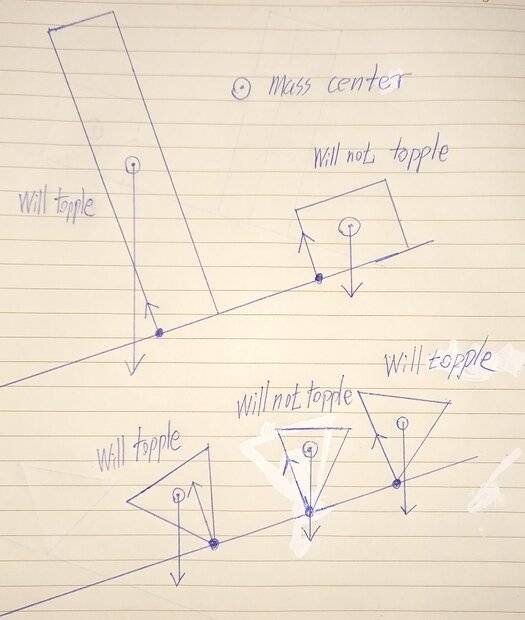 Mass center
Will not topple
Will topple
Will topple
Will not topple
Will topple